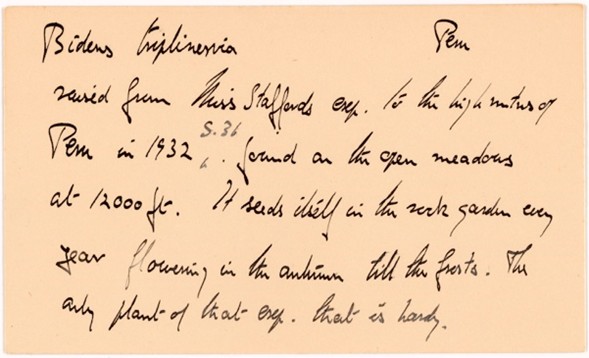 Bidens triplinervia Peru
raised from Miss Staffords exp. to the high mtns of
Peru in 1932 S.36 . found on the open meadows
at 12000 ft. It seeds itself in the rock garden every
year flowering in the autumn till the frosts. The
only plant of that exp. that is hardy.